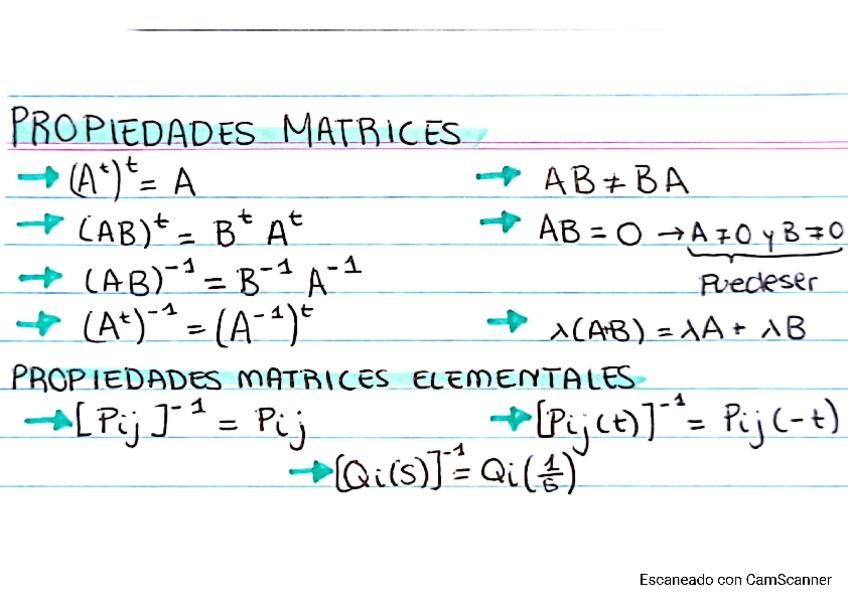 PROPIEDADES MATRICES
→ (Aᵗ)ᵗ = A
→ (AB)ᵗ = Bᵗ Aᵗ
→ (AB)⁻¹ = B⁻¹ A⁻¹
→ (Aᵗ)⁻¹ = (A⁻¹)ᵗ
→ AB ≠ BA
→ AB = 0 → A ≠ 0 y B ≠ 0
Puede ser
→ λ(A+B) = λA + λB
PROPIEDADES MATRICES ELEMENTALES
→ [Pij]⁻¹ = Pij
→ [Pij(t)]⁻¹ = Pij(-t)
→ [Qi(s)]⁻¹ = Qi(1/s)
Escaneado con CamScanner